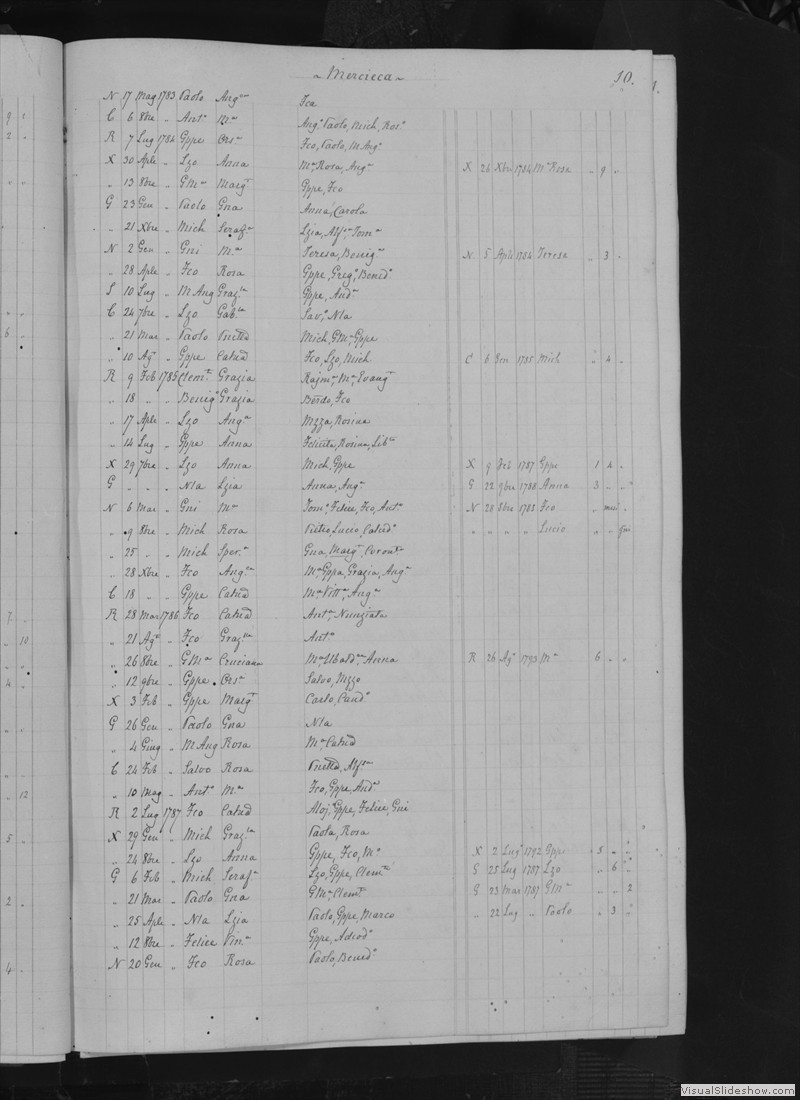 ~ Mercieca ~ 10.
N 17 Mag 1783 Paolo Ang.na Fca
C 6 8bre „ Ant.o M.a Ang.o Paolo, Mich, Ros.o
R 7 Lug 1784 Gppe Ors.a Fco, Paolo, M Ang.o
X 30 Aple „ Lzo Anna M.a Rosa, Ang.a X 26 Xbre 1784 M.a Rosa „ 9 „
„ 13 8bre „ GM.a Marg.t Gppe, Fco
G 23 Gen „ Paolo Gna Anna, Carola
„ 21 Xbre „ Mich Seraf.a Lzia, Alf.a Tom.a
N 2 Gen „ Gni M.a Teresa, Benig.a N 5 Aple 1784 Teresa „ 3 „
„ 28 Aple „ Fco Rosa Gppe, Greg.o Bened.o
S 10 Lug „ M Ang Graz.la Gppe, And.a
C 24 7bre „ Lzo Gab.la Sav.o Nla
„ 21 Mar „ Paolo Mich, GM.a Gppe
„ 10 Ag.o „ Gppe Catad Fco, Lzo, Mich C 6 1785 Mich „ 4 „
R 9 Feb 1785 Clem.te Grazia Rajm.o M.a Evang.t
„ 18 „ „ Benig.o Grazia Bärdo, Fco
„ 17 Aple „ Lzo Ang.a Mzza, Rosina
„ 14 Lug „ Gppe Anna Felicita, Rosina, Lib.ta
X 29 7bre „ Lzo Anna Mich, Gppe X 9 Feb 1787 Gppe 1 4 „
G „ „ „ Nla Lzia Anna, Ang.a G 22 9bre 1788 Anna 3 „ „
N 6 Mar „ Gni M.a Tom.o Felice, Fco, Ant.a N 20 8bre 1785 Fco „
„ 9 8bre „ Mich Rosa Pietro, Lucio, Catad.o „ „ „ „ Lucio „ „
„ 25 „ „ Mich Sper.a Gna, Marg.t, Coron.ta
„ 28 Xbre „ Fco Ang.ca M.a Gppa, Grazia, Ang.a
C 18 „ „ Gppe Catad M.a Vitt.a, Ang.a
R 28 Mar 1786 Fco Catad Ant.a Nunziata
„ 21 Ag.o „ Fco Graz.lla Ant.o
„ 26 8bre „ GM.a Cruciana M.a Ubald.na Anna R 26 Ag.o 1793 M.a 6 „ „
„ 12 9bre „ Gppe Ors.a Salvo, Mzzo
X 3 Feb „ Gppe Marg.t Carlo, Cand.o
G 26 Gen „ Paolo Gna Nla
„ 4 Giug „ M Ang Rosa M.a Catad
C 24 Feb „ Salvo Rosa Alf.a
„ 10 Mag „ Ant.o M.a Fco, Gppe, And.a
R 2 Lug 1787 Fco Catad Aloj.o Gppe, Felice, Gni
X 29 Gen „ Mich Graz.la Paola, Rosa
„ 24 8bre „ Lzo Anna Gppe, Fco, M.a X 2 Lug 1792 Gppe „ 5 „ „
G 6 Feb „ Mich Seraf.a Lzo, Gppe, Clem.te G 25 Lug 1787 Lzo „ 6 „
„ 21 Mar „ Paolo Gna GM.a Clem.te G 23 Mar 1787 GM.a „ „ 2
„ 25 Aple „ Nla Lzia Paolo, Gppe, Marco „ 22 Lug „ Paolo „ 3 „
„ 12 8bre „ Felice Vin.a Gppe, Adeod.o
N 20 Gen „ Fco Rosa Paolo, Bened.o
VisualSlideshow.com